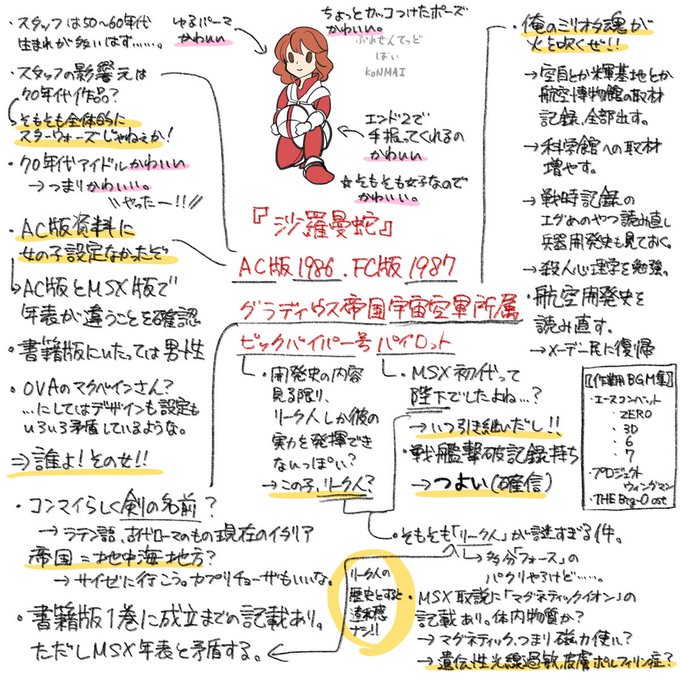 ・スタッフは50〜60年代
生まれが多いはず……。
・スタッフの影響元は
70年代作品?
そもそも全体的に
スターウォーズじゃねぇか!
・70年代アイドルかわいい
→つまりかわいい。
\\やったー!!//
・AC版資料に
女の子設定なかったぞ
→AC版とMSX版で
年表が違うことを確認
・書籍版にいたっては男性
・OVAのマクベインさん?
…にしてはデザインも設定も
いろいろ矛盾しているような。
⇒誰よ!その女!!
ゆるパーマ
かわいい
ちょっとカッコつけたポーズ
かわいい。
ぷれぜんてっど
ばい
KONMAI
エンド2で
手振ってくれるの
かわいい
☆そもそも女子なので
かわいい。
『沙羅曼蛇』
AC版1986、FC版1987
グラディウス帝国宇宙空軍所属
ビックバイパー号パイロット
・俺のミリオタ魂が
火を吹くぜ!!
→空自とか米軍基地とか
航空博物館の取材
記録、全部出す。
→科学館への取材
増やす。
→戦時記録の
エグめのやつ読み直し
兵器開発史も見ておく。
→殺人心理学を勉強。
・航空開発史を
読み直す。
→メーデー民に復帰
【作業用BGM集】
・エースコンバット
・ZERO
・3D
・6
・7
・プロジェクト
ウィングマン
・THE Big-O ost
・開発史の内容
見る限り、
リーク人しか彼の
実力を発揮でき
ないっぽい?
→この子、リーク人?
・MSX初代って
陛下でしたよね…?
→いつ引き継いだし!!
・戦艦撃破記録持ち
→つよい(確信)
・コンマイらしく剣の名前?
→ラテン語、古代ローマのもの現在のイタリア
帝国=地中海地方?
→サイゼに行こう。カプリチョーザもいいな。
・書籍版1巻に成立までの記載あり。
ただしMSX年表と矛盾する。
リーク人の
歴史とすると
違和感
ナシ!!
・そもそも「リーク人」が謎すぎる件。
→多分「フォース」の
パクリやろけど……。
・MSX取説に「マグネティックイオン」の
記載あり。体内物質か?
→マグネティック、つまり磁力使い?
→遺伝性光線過敏皮膚ポルフィリン症?